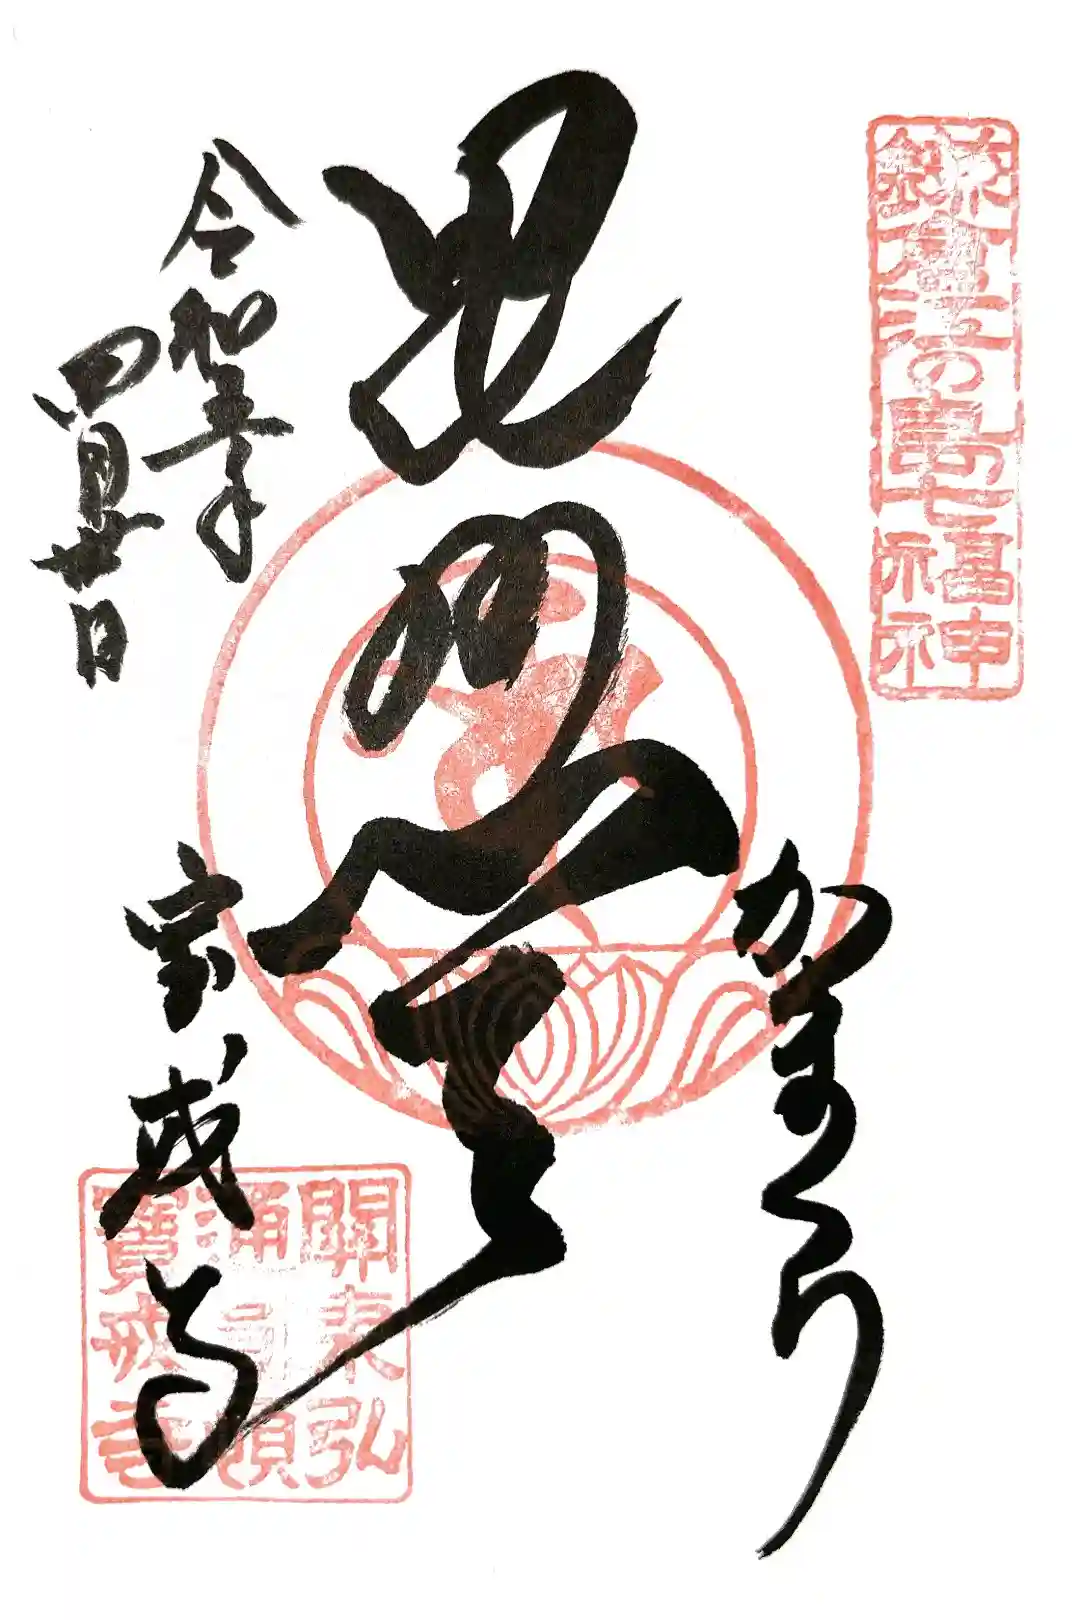 鎌倉江の島七福神
かまくら
毘沙門天
令和五年
四月廿日
宝戒寺
關東弘
通圓頓
寶戒寺